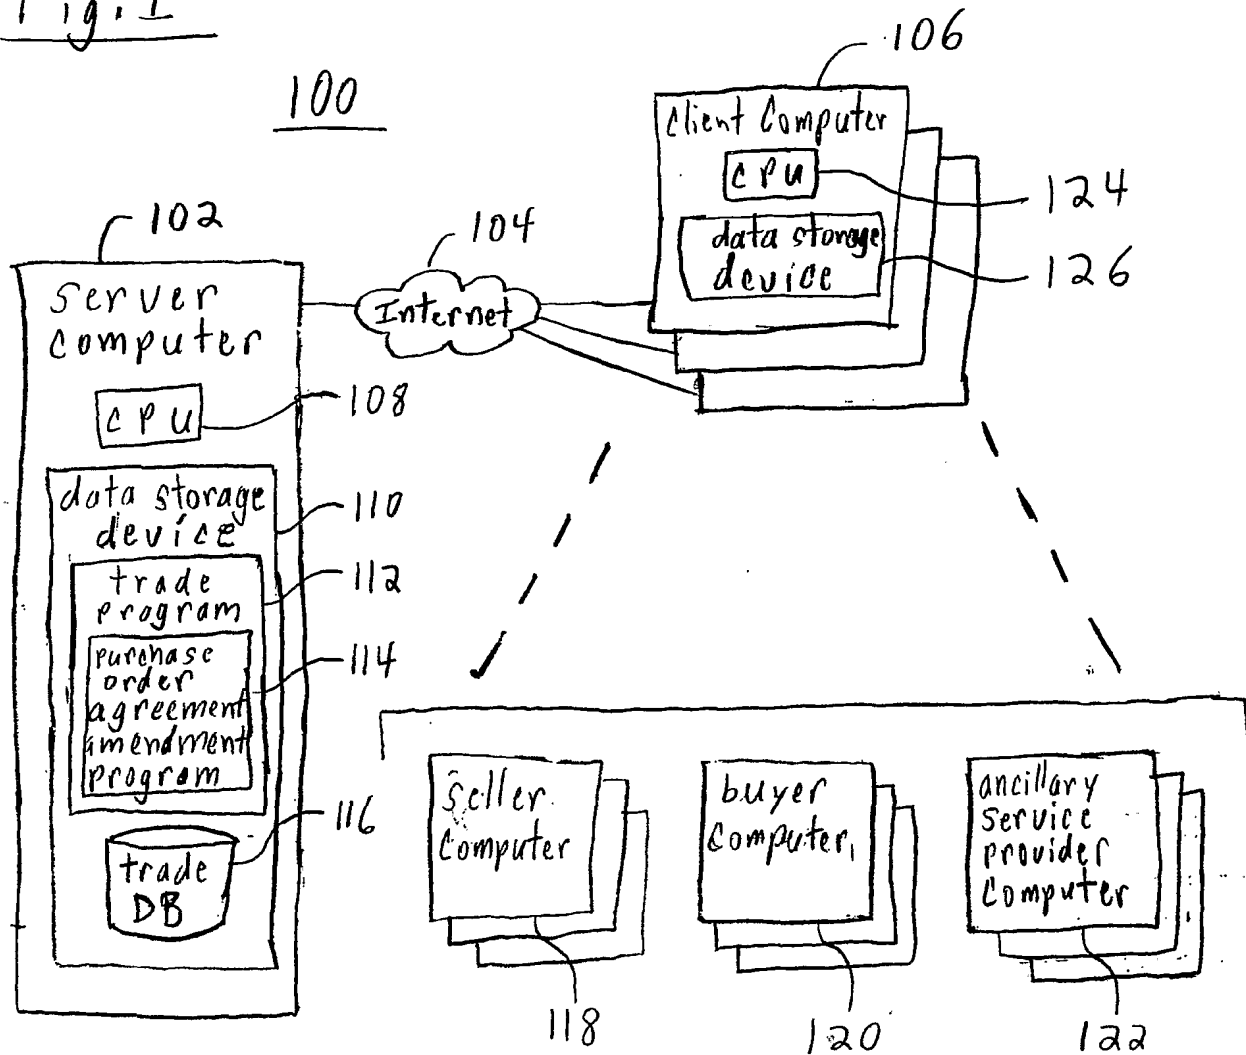 Fig. 1
100
106
Client Computer
CPU
124
data storage
device
126
102
104
Internet
server
computer
CPU
108
data storage
device
110
trade
program
112
purchase
order
agreement
amendment
program
114
trade
DB
116
seller
computer
118
buyer
computer
120
ancillary
service
provider
computer
122